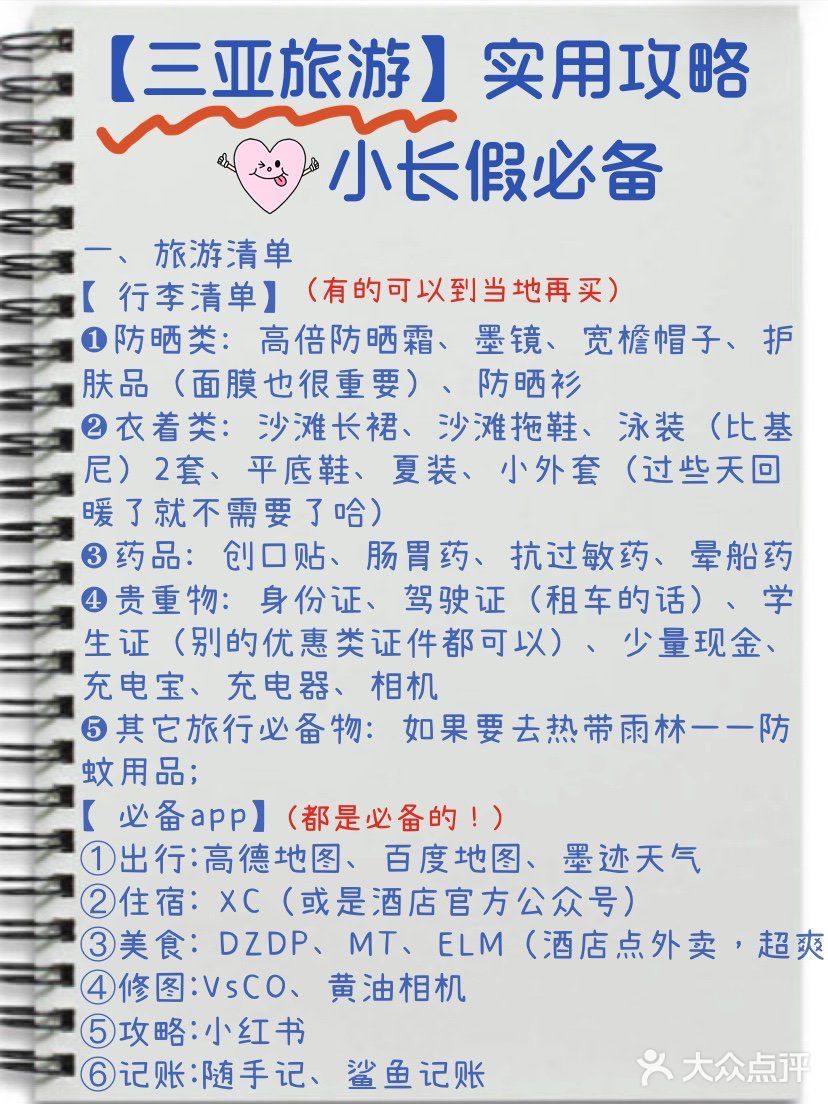 【三亚旅游】实用攻略
小长假必备
一、旅游清单
【 行李清单】（有的可以到当地再买）
❶防晒类：高倍防晒霜、墨镜、宽檐帽子、护
肤品（面膜也很重要）、防晒衫
❷衣着类：沙滩长裙、沙滩拖鞋、泳装（比基
尼）2套、平底鞋、夏装、小外套（过些天回
暖了就不需要了哈）
❸药品：创口贴、肠胃药、抗过敏药、晕船药
❹贵重物：身份证、驾驶证（租车的话）、学
生证（别的优惠类证件都可以）、少量现金、
充电宝、充电器、相机
❺其它旅行必备物：如果要去热带雨林——防
蚊用品;
【 必备app】（都是必备的！）
①出行:高德地图、百度地图、墨迹天气
②住宿：XC（或是酒店官方公众号）
③美食：DZDP、MT、ELM（酒店点外卖，超爽
④修图:VsCO、黄油相机
⑤攻略:小红书
⑥记账:随手记、鲨鱼记账
大众点评